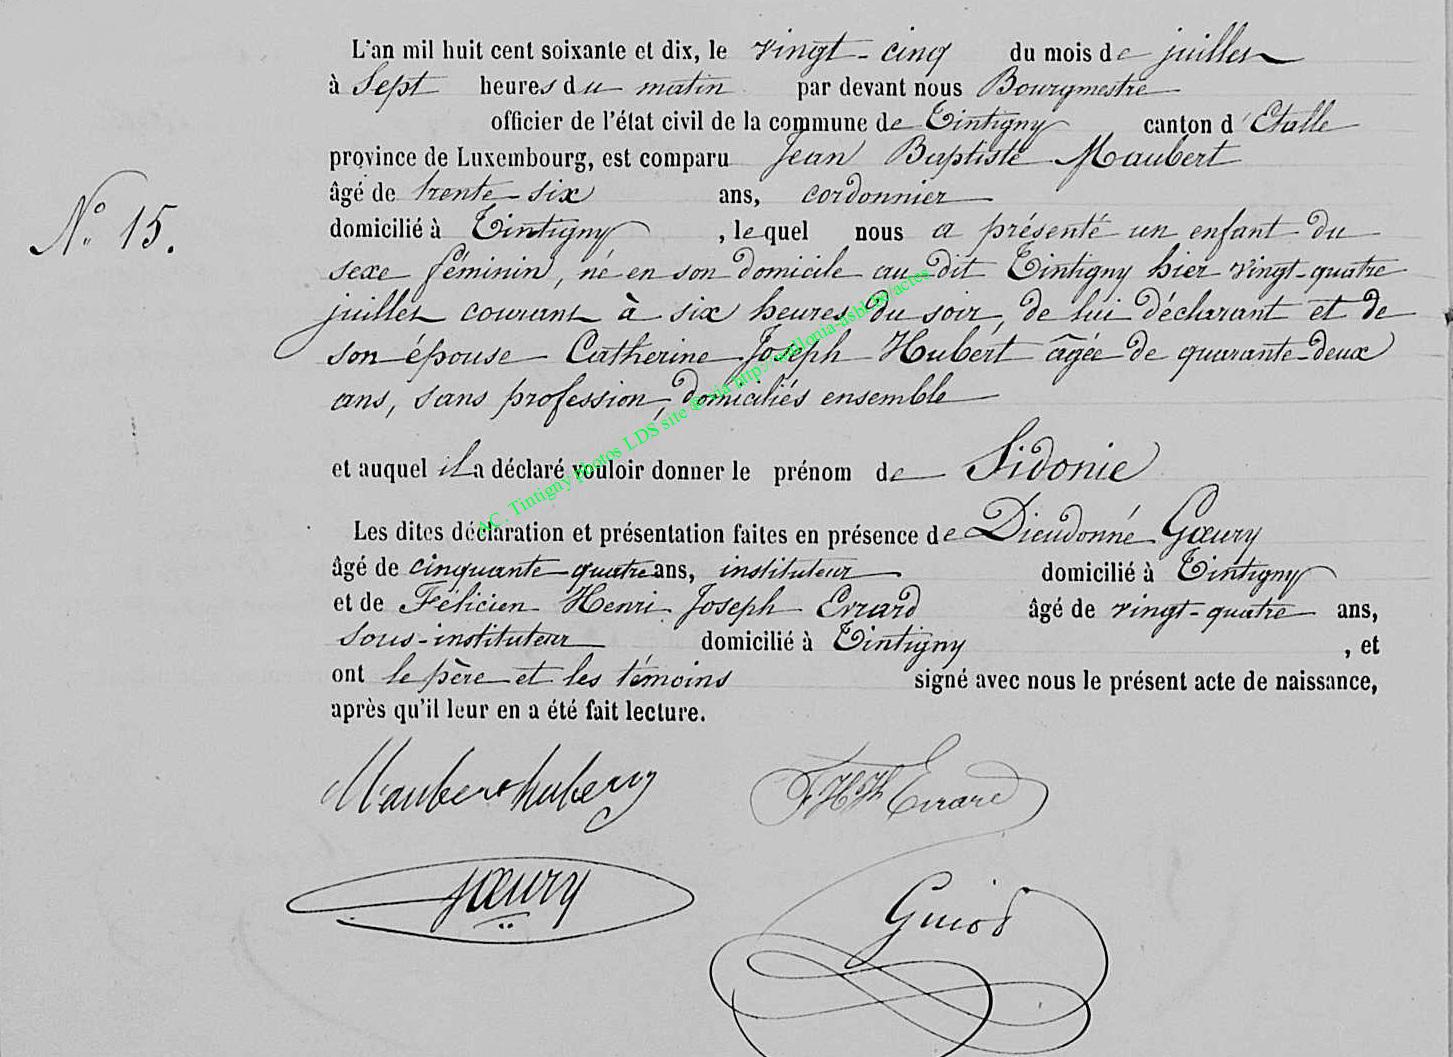 L'an mil huit cent soixante et dix, le vingt-cinq du mois de juillet
à Sept heures du matin par devant nous Bourgmestre
officier de l'état civil de la commune de Tintigny canton d'Etalle
province de Luxembourg, est comparu Jean Baptiste Maubert
âgé de trente-six ans, cordonnier
N° 15.
domicilié à Tintigny, lequel nous a présenté un enfant du
sexe féminin, né en son domicile au dit Tintigny hier vingt-quatre
juillet courant à six heures du soir, de lui déclarant et de
son épouse Catherine Joseph Hubert âgée de quarante-deux
ans, sans profession, domiciliés ensemble
et auquel il a déclaré vouloir donner le prénom de Sidonie
Les dites déclaration et présentation faites en présence de Dieudonné Gœury
âgé de cinquante-quatre ans, instituteur domicilié à Tintigny
et de Félicien Henri Joseph Errard âgé de vingt-quatre ans,
sous-instituteur domicilié à Tintigny, et
ont le père et les témoins signé avec nous le présent acte de naissance,
après qu'il leur en a été fait lecture.
Maubert huberty
Gœury
Guiot
AC. Tintigny photos LDS site @ via http://wallonia-asbl.be/actes